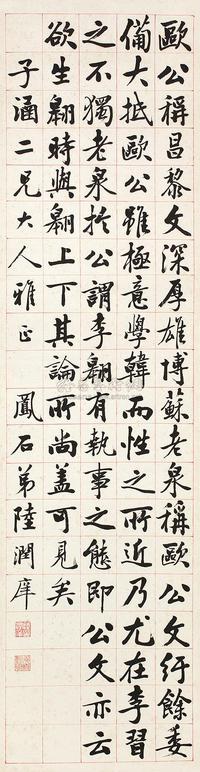 歐公稱昌黎文深厚雄博蘇老泉稱歐公文紆餘委
備大抵歐公雖極意學韓而性之所近乃尤在李習
之不獨老泉於公謂李翱有執事之態即公文亦云
欲生翱時與翱上下其論所尚蓋可見矣
子涵二兄大人雅正 鳳石弟陸潤庠